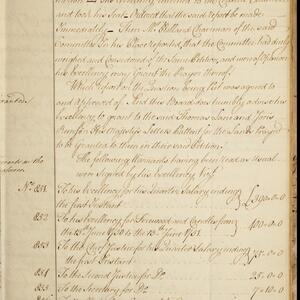 and took his Seat Ordered that the said report be made
Immediately — Then Mr Holland Chairman of the said
Committee in his Place reported, that the Committee had duly
weighed and Considered of the same Petition, and were of Opinion
his Excellency may Grant the Prayer thereof
Which Report on the Question being put was agreed to
and approved of And this Board do humbly advise his
Excellency to grant to the said Thomas and
his Majesty's Letters Patent for the Lands Prayed
to be granted to them in their said Petition
The following Warrants having been read as usual
were signed by his Excellency Viz
warrants in the
No 851. To his Excellency for his Quarters Salary ending
the first Instant £390..0..0
852 To his Excellency for Firewood and Candles from
the 13th June 1750 to the 13th June 1751. 400..0..0
853 To the Chief Justice for his Quarters Salary ending
the first Instant 75..0..0
854 To the Second Justice for Do 25..0..0
855 To the Secretary for Do 7..10..0